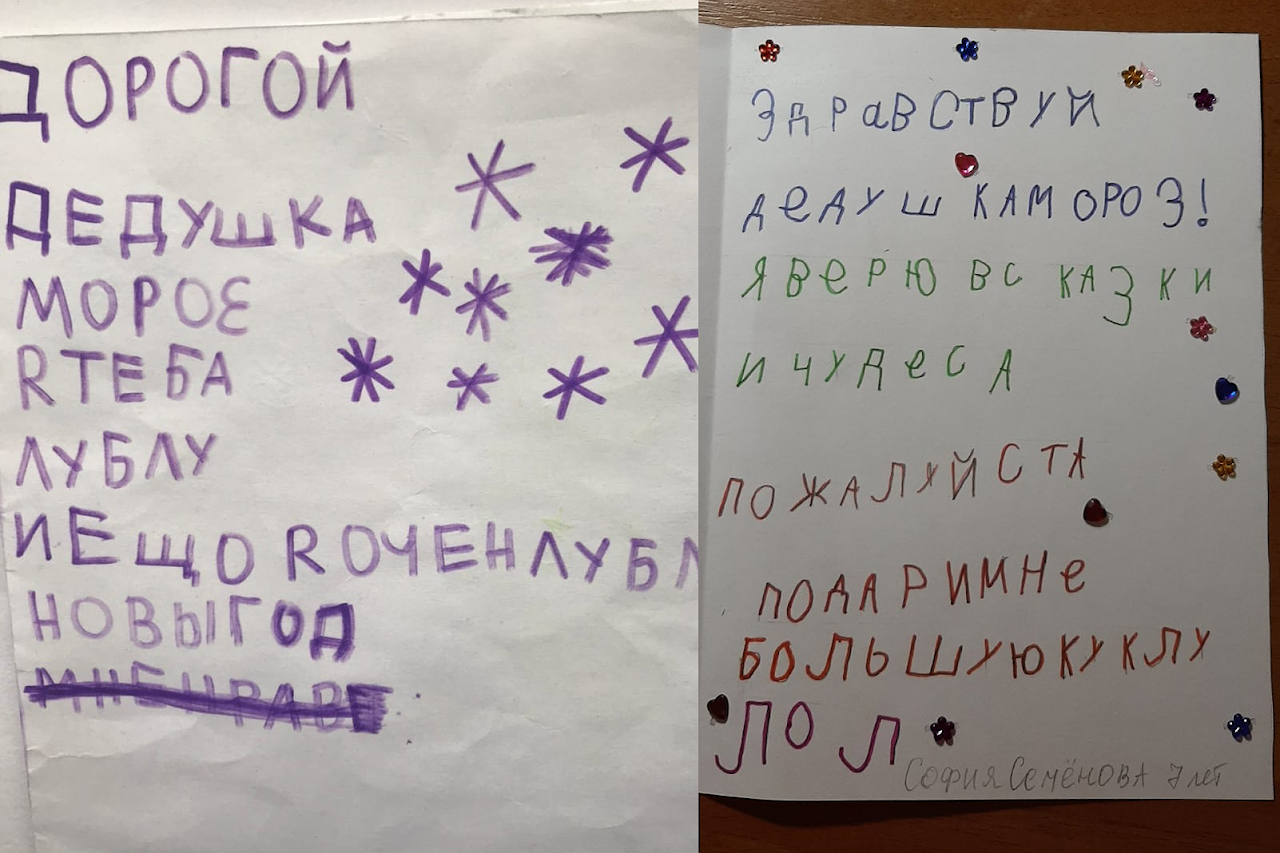 ДОРОГОЙ
ДЕДУШКА
МОРОЗ
ЯТЕБА
ЛУБЛУ
ИЕЩО ЯОЧЕНЛУБЛ
НОВЫГОД
ЗДРАВСТВУЙ
ДЕДУШКАМОРОЗ!
Я ВЕРЮ В СКАЗКИ
И ЧУДЕСА
ПОЖАЛУЙСТА
ПОДАРИМНЕ
БОЛЬШУЮКУКЛУ
ЛОЛ
СОФИЯ СЕМЁНОВА 7 лет